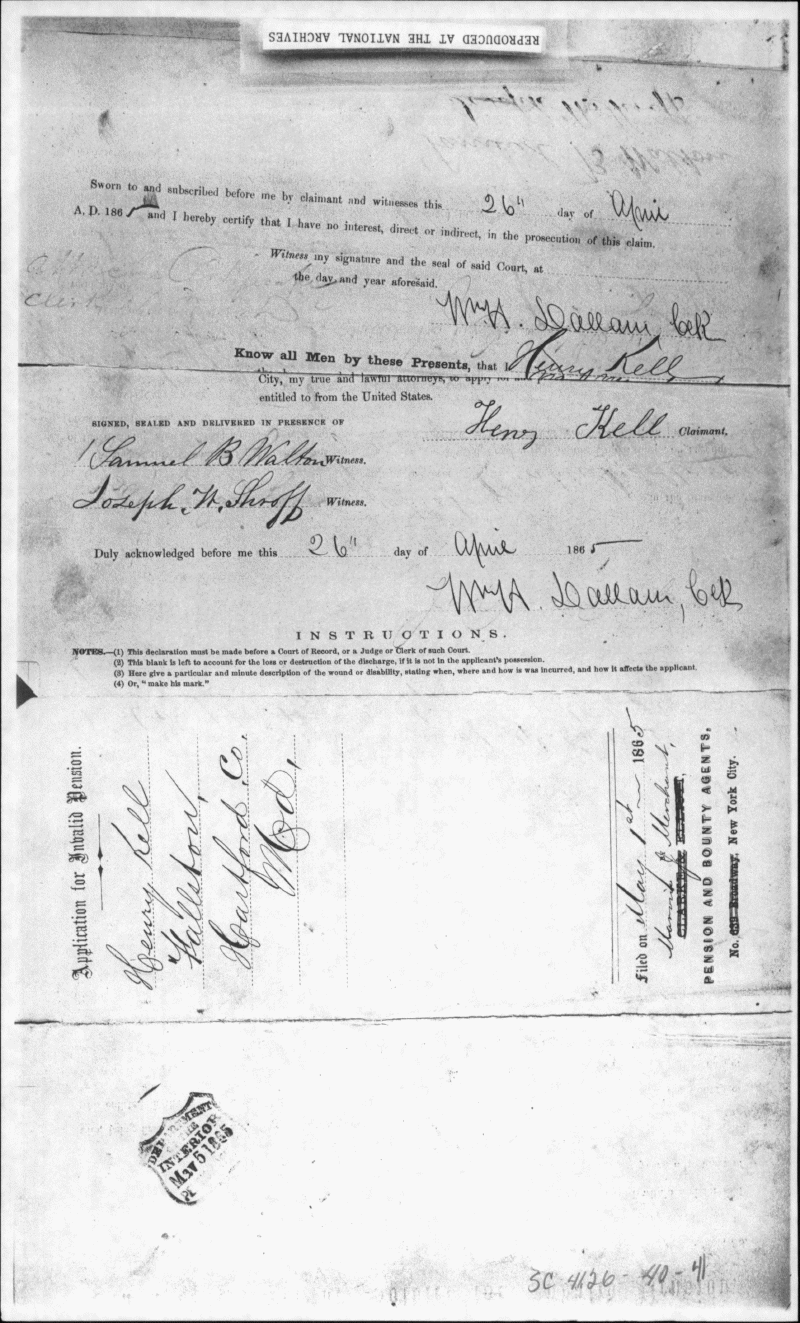 REPRODUCED AT THE NATIONAL ARCHIVES
Sworn to and subscribed before me by claimant and witnesses this 26" day of April
A. D. 1865 and I hereby certify that I have no interest, direct or indirect, in the prosecution of this claim.
Witness my signature and the seal of said Court, at
the day and year aforesaid.
Wm H. Dallam, Clk
Know all Men by these Presents, that I Henry Kell
City, my true and lawful attorneys, to apply for
entitled to from the United States.
SIGNED, SEALED AND DELIVERED IN PRESENCE OF
Henry Kell Claimant.
Samuel B Walton Witness.
Joseph. W. Shroff Witness.
Duly acknowledged before me this 26" day of April 1865
Wm H. Dallam, Clk
INSTRUCTIONS.
NOTES.—(1) This declaration must be made before a Court of Record, or a Judge or Clerk of such Court.
(2) This blank is left to account for the loss or destruction of the discharge, if it is not in the applicant's possession.
(3) Here give a particular and minute description of the wound or disability, stating when, where and how is was incurred, and how it affects the applicant.
(4) Or, "make his mark."
Application for Invalid Pension.
Henry Kell
Fallston,
Hartford Co.
Md,
Filed on May 1st 1865
& Merchant,
PENSION AND BOUNTY AGENTS,
No. Broadway, New York City.
DEPARTMENT
THE
INTERIOR
MAY 5 1865
3C 4126-40-41